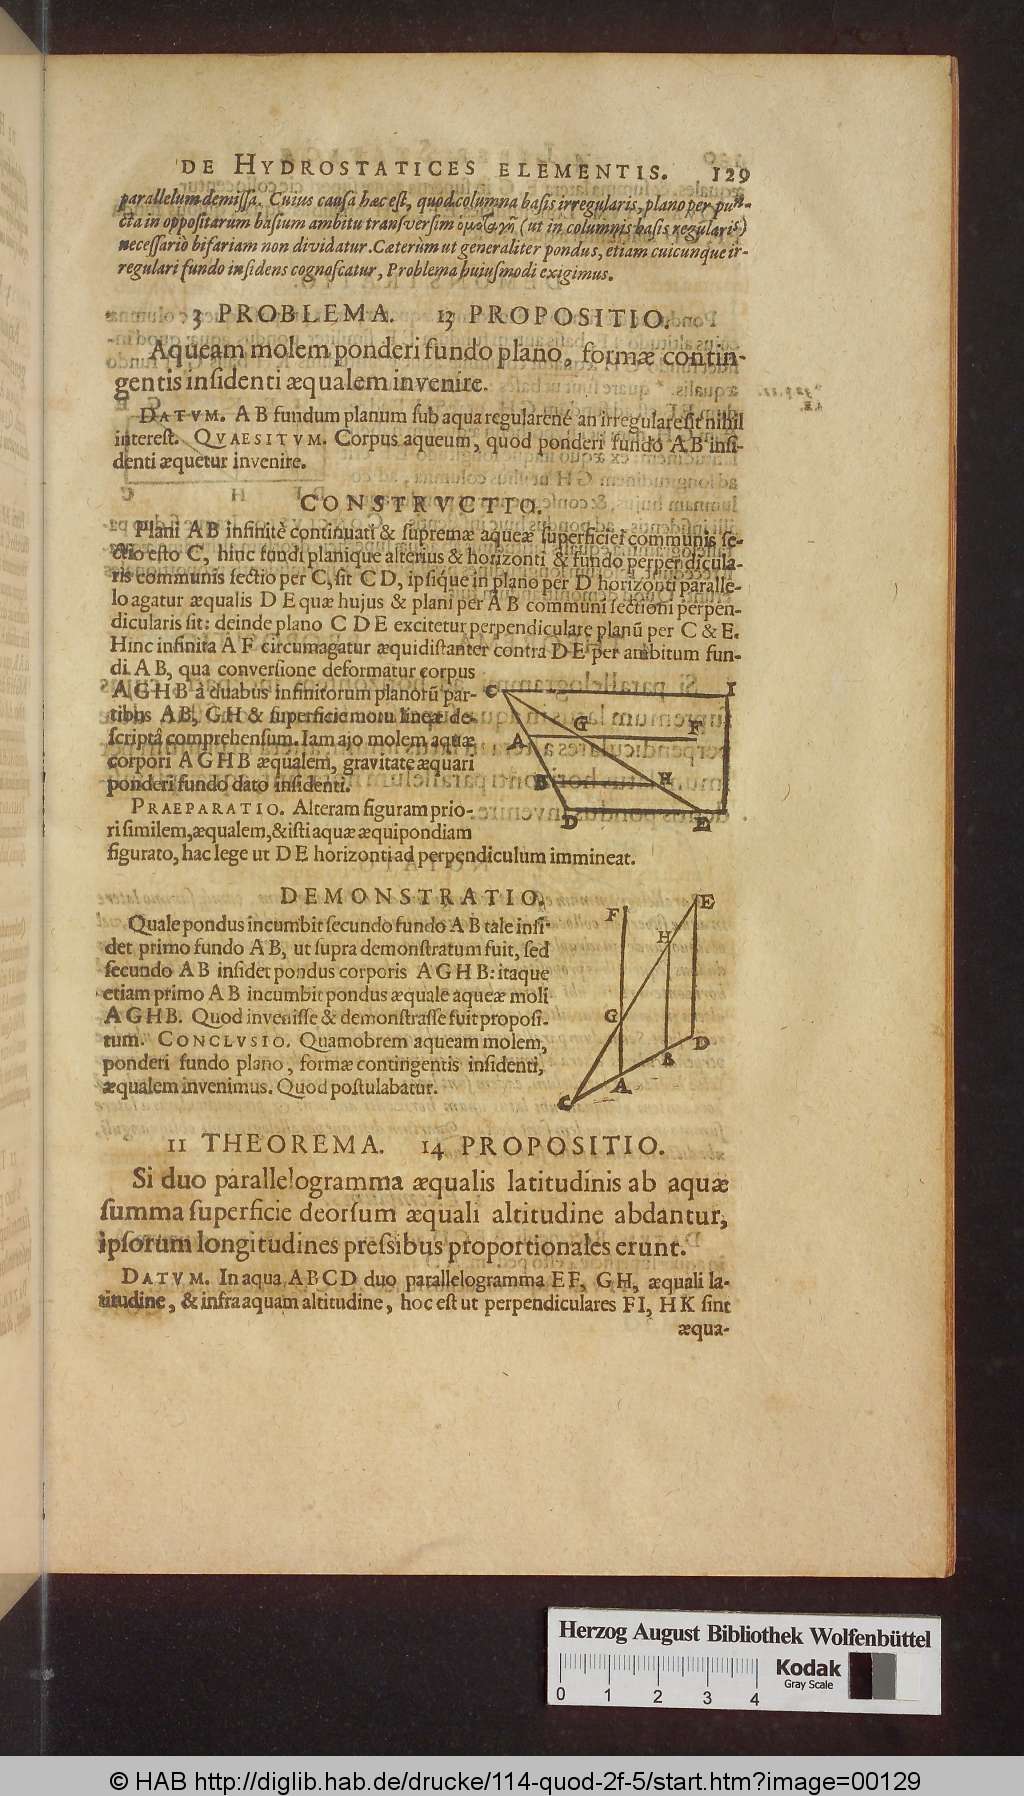 DE HYDROSTATICES ELEMENTIS. 129
parallelum demissa. Cuius causa hæc est, quod columna basis irregularis, plano per pun-
cta in oppositarum basium ambitu transversim (ut in columnis basis regularis)
necessariò bifariam non dividatur. Cæterùm ut generaliter pondus, etiam cuicunque ir-
regulari fundo insidens cognoscatur, Problema hujusmodi exigimus.
3 PROBLEMA. 13 PROPOSITIO.
Aqueam molem ponderi fundo plano, formæ contin-
gentis insidenti æqualem invenire.
DATVM. A B fundum planum sub aqua regularené an irregulare sit nihil
interest. QVAESITVM. Corpus aqueum, quod ponderi fundo A B insi-
denti æquetur invenire.
CONSTRVCTIO.
Plani A B infinitè continuati & supremæ aqueæ superficiei communis se-
ctio esto C, hinc fundi planique alterius & horizonti & fundo perpendicula-
ris communis sectio per C, sit C D, ipsique in plano per D horizonti paralle-
lo agatur æqualis D E quæ hujus & plani per A B communi sectioni perpen-
dicularis sit: deinde plano C D E excitetur perpendiculare planū per C & E.
Hinc infinita A F circumagatur æquidistanter contra D E per ambitum fun-
di A B, qua conversione deformatur corpus
A G H B à duabus infinitorum planorū par-
tibus A B, G H & superficie motu lineæ de-
scriptâ comprehensum. Iam ajo molem aquæ
corpori A G H B æqualem, gravitate æquari
ponderi fundo dato insidenti.
PRAEPARATIO. Alteram figuram prio-
ri similem, æqualem, & isti aquæ æquipondiam
figurato, hac lege ut D E horizonti ad perpendiculum immineat.
C I
G F
A
B H
D E
DEMONSTRATIO.
Quale pondus incumbit secundo fundo A B tale insi-
det primo fundo A B, ut supra demonstratum fuit, sed
secundo A B insidet pondus corporis A G H B: itaque
etiam primo A B incumbit pondus æquale aqueæ moli
A G H B. Quod invenisse & demonstrasse fuit proposi-
tum. CONCLVSIO. Quamobrem aqueam molem,
ponderi fundo plano, formæ contingentis insidenti,
æqualem invenimus. Quod postulabatur.
E
F
H
G
D
B
A
C
11 THEOREMA. 14 PROPOSITIO.
Si duo parallelogramma æqualis latitudinis ab aquæ
summa superficie deorsum æquali altitudine abdantur,
ipsorum longitudines pressibus proportionales erunt.
DATVM. In aqua A B C D duo parallelogramma E F, G H, æquali la-
titudine, & infra aquam altitudine, hoc est ut perpendiculares F I, H K sint
æqua-
Herzog August Bibliothek Wolfenbüttel
Kodak
Gray Scale
0 1 2 3 4
© HAB http://diglib.hab.de/drucke/114-quod-2f-5/start.htm?image=00129